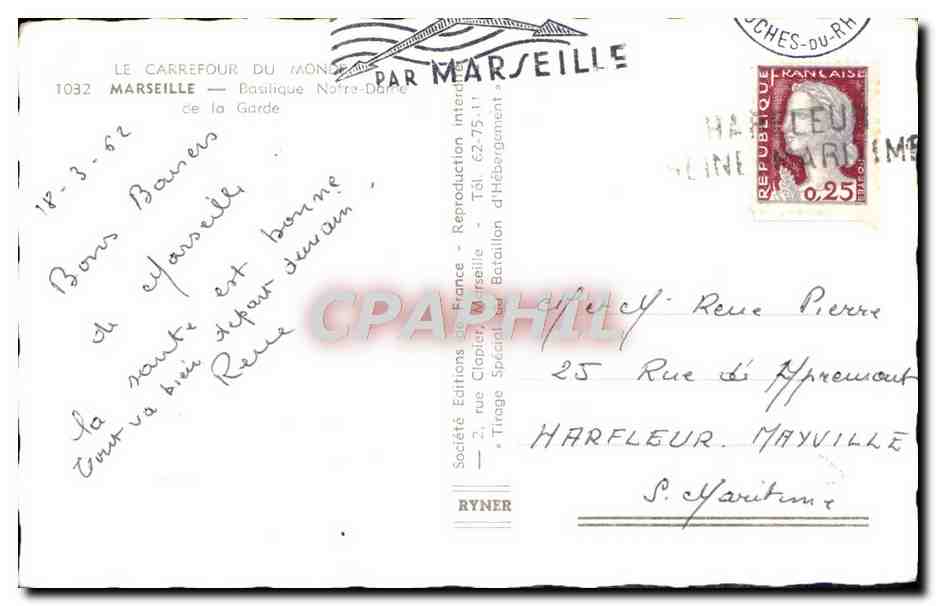 PAR MARSEILLE
OCHES-DU-RH
LE CARREFOUR DU MONDE
1032 MARSEILLE — Basilique Notre-Dame
de la Garde
REPUBLIQUE FRANÇAISE
0,25
HARFLEU
SEINE MARITIME
18-3-62
Bons Baisers
de Marseille
la santé est bonne
tout va bien départ demain
Rene
Société Editions de France - Reproduction interdite
— 2, rue Clapier, Marseille - Tél. 62-75-11
« Tirage Spécial du Bataillon d'Hébergement »
RYNER
CPAPHIL
M et Me Rene Pierre
25 Rue d'Apremont
HARFLEUR. MAYVILLE
S. Maritime